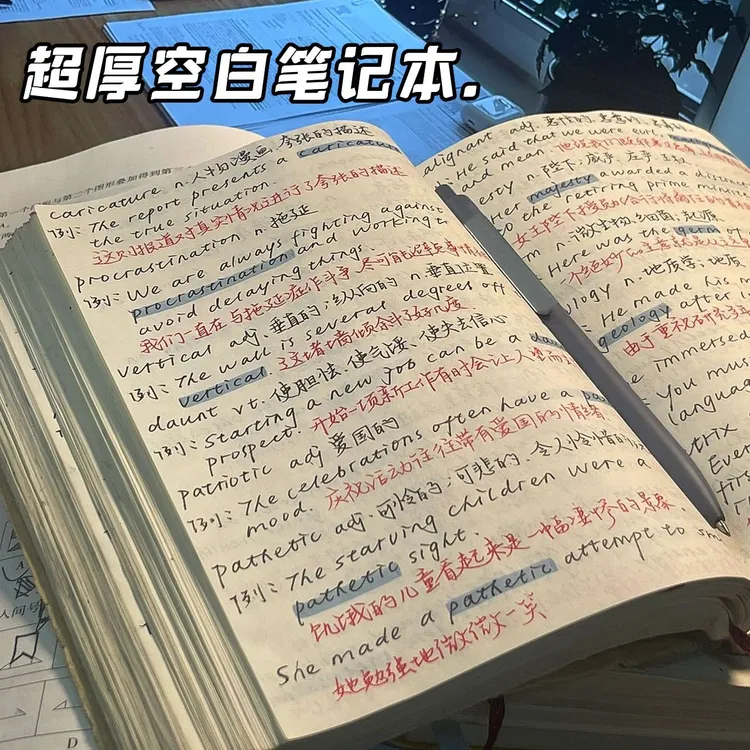 超厚空白笔记本.
第一个
与第二个图形叠加得到第
caricature n.人物漫画,夸张的描述
例: The report presents a caricature
the true situation.
这则报道对真实情况进行了夸张的描述
procrastination n.拖延
例: We are always fighting against
procrastination and working to
avoid delaying things.
我们一直在与拖延症作斗争,尽可能避免
vertical adj.垂直的;纵向的 n.垂直位置
例: The wall is several degrees off
vertical. 这堵墙倾斜了好几度
daunt vt.使胆怯,使气馁,使失去信心
例: Starting a new job can be a
prospect. 开始一项新工作有时会让人
patriotic adj 爱国的
例: The celebrations often have a
mood. 庆祝活动往往带有爱国的情绪
pathetic adj.可怜的;可悲的,令人怜惜的
例: The starving children were a
pathetic sight.
饥饿的儿童看起来是一幅凄惨的景象.
She made a pathetic attempt to
她勉强地微微一笑
alignant adj.
He said that we were
and mean.
esty n.陛下,威严,庄严
Her majesty awarded a
to the retiring prime
m n.微生物,细菌,起源
Here was the germ of
ology n.地质学,地质
He made his
geology after
由于重视研究
immersed
You must
language
trix
Ever
first
人
A
D